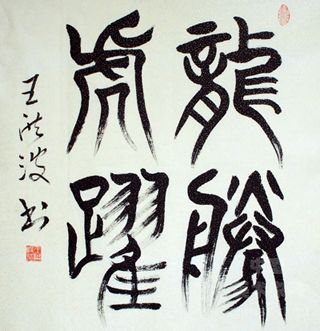 龍騰
虎躍
王洪波书